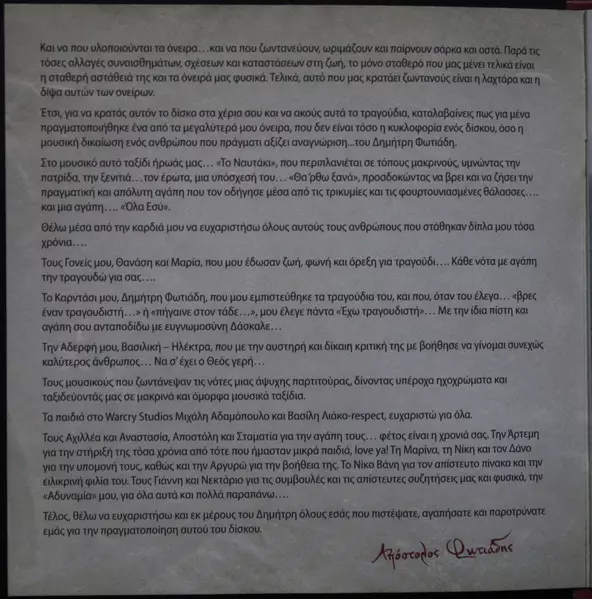 Και να που υλοποιούνται τα όνειρα…και να που ζωντανεύουν, ωριμάζουν και παίρνουν σάρκα και οστά. Παρά τις
τόσες αλλαγές συναισθημάτων, σχέσεων και καταστάσεων στη ζωή, το μόνο σταθερό που μας μένει τελικά είναι
η σταθερή αστάθειά της και τα όνειρά μας φυσικά. Τελικά, αυτό που μας κρατάει ζωντανούς είναι η λαχτάρα και η
δίψα αυτών των ονείρων.
Έτσι, για να κρατάς αυτόν το δίσκο στα χέρια σου και να ακούς αυτά τα τραγούδια, καταλαβαίνεις πως για μένα
πραγματοποιήθηκε ένα από τα μεγαλύτερά μου όνειρα, που δεν είναι τόσο η κυκλοφορία ενός δίσκου, όσο η
μουσική δικαίωση ενός ανθρώπου που πράγματι αξίζει αναγνώριση...του Δημήτρη Φωτιάδη.
Στο μουσικό αυτό ταξίδι ήρωάς μας… «Το Ναυτάκι», που περιπλανιέται σε τόπους μακρινούς, υμνώντας την
πατρίδα, την ξενιτιά…τον έρωτα, μια υπόσχεσή του… «Θα 'ρθω ξανά», προσδοκώντας να βρει και να ζήσει την
πραγματική και απόλυτη αγάπη που τον οδήγησε μέσα από τις τρικυμίες και τις φουρτουνιασμένες θάλασσες….
και μια αγάπη…. «Όλα Εσύ».
Θέλω μέσα από την καρδιά μου να ευχαριστήσω όλους αυτούς τους ανθρώπους που στάθηκαν δίπλα μου τόσα
χρόνια….
Τους Γονείς μου, Θανάση και Μαρία, που μου έδωσαν ζωή, φωνή και όρεξη για τραγούδι…. Κάθε νότα με αγάπη
την τραγουδώ για σας….
Το Καρντάσι μου, Δημήτρη Φωτιάδη, που μου εμπιστεύθηκε τα τραγούδια του, και που, όταν του έλεγα… «βρες
έναν τραγουδιστή…» ή «πήγαινε στον τάδε…», μου έλεγε πάντα «Έχω τραγουδιστή»… Με την ίδια πίστη και
αγάπη σου ανταποδίδω με ευγνωμοσύνη Δάσκαλε…
Την Αδερφή μου, Βασιλική – Ηλέκτρα, που με την αυστηρή και δίκαιη κριτική της με βοήθησε να γίνομαι συνεχώς
καλύτερος άνθρωπος… Να σ' έχει ο Θεός γερή…
Τους μουσικούς που ζωντάνεψαν τις νότες μιας άψυχης παρτιτούρας, δίνοντας υπέροχα ηχοχρώματα και
ταξιδεύοντάς μας σε μακρινά και όμορφα μουσικά ταξίδια.
Τα παιδιά στο Warcry Studios Μιχάλη Αδαμόπουλο και Βασίλη Λιάκο-respect, ευχαριστώ για όλα.
Τους Αχιλλέα και Αναστασία, Αποστόλη και Σταματία για την αγάπη τους… φέτος είναι η χρονιά σας. Την Άρτεμη
για την στήριξή της τόσα χρόνια από τότε που ήμασταν μικρά παιδιά, love ya! Τη Μαρίνα, τη Νίκη και τον Δάνο
για την υπομονή τους, καθώς και την Αργυρώ για την βοήθεια της. Το Νίκο Βάνη για τον απίστευτο πίνακα και την
ειλικρινή φιλία του. Τους Γιάννη και Νεκτάριο για τις συμβουλές και τις απίστευτες συζητήσεις μας και φυσικά, την
«Αδυναμία» μου, για όλα αυτά και πολλά παραπάνω….
Τέλος, θέλω να ευχαριστήσω και εκ μέρους του Δημήτρη όλους εσάς που πιστέψατε, αγαπήσατε και παροτρύνατε
εμάς για την πραγματοποίηση αυτού του δίσκου.
Απόστολος Φωτιάδης